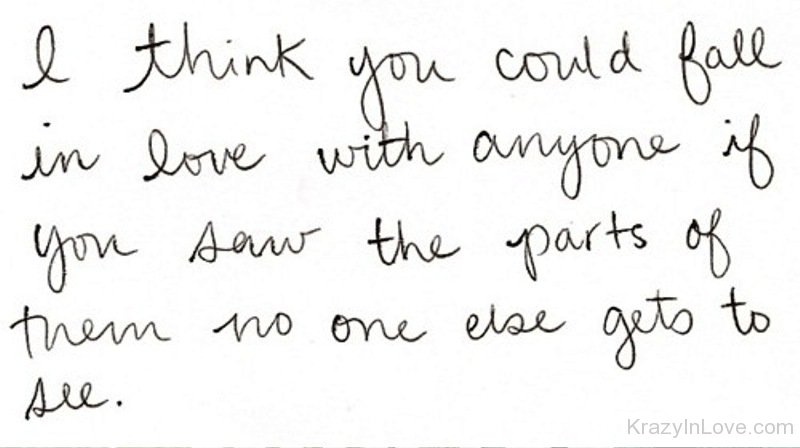 I think you could fall
in love with anyone if
you saw the parts of
them no one else gets to
see.
KrazyInLove.com